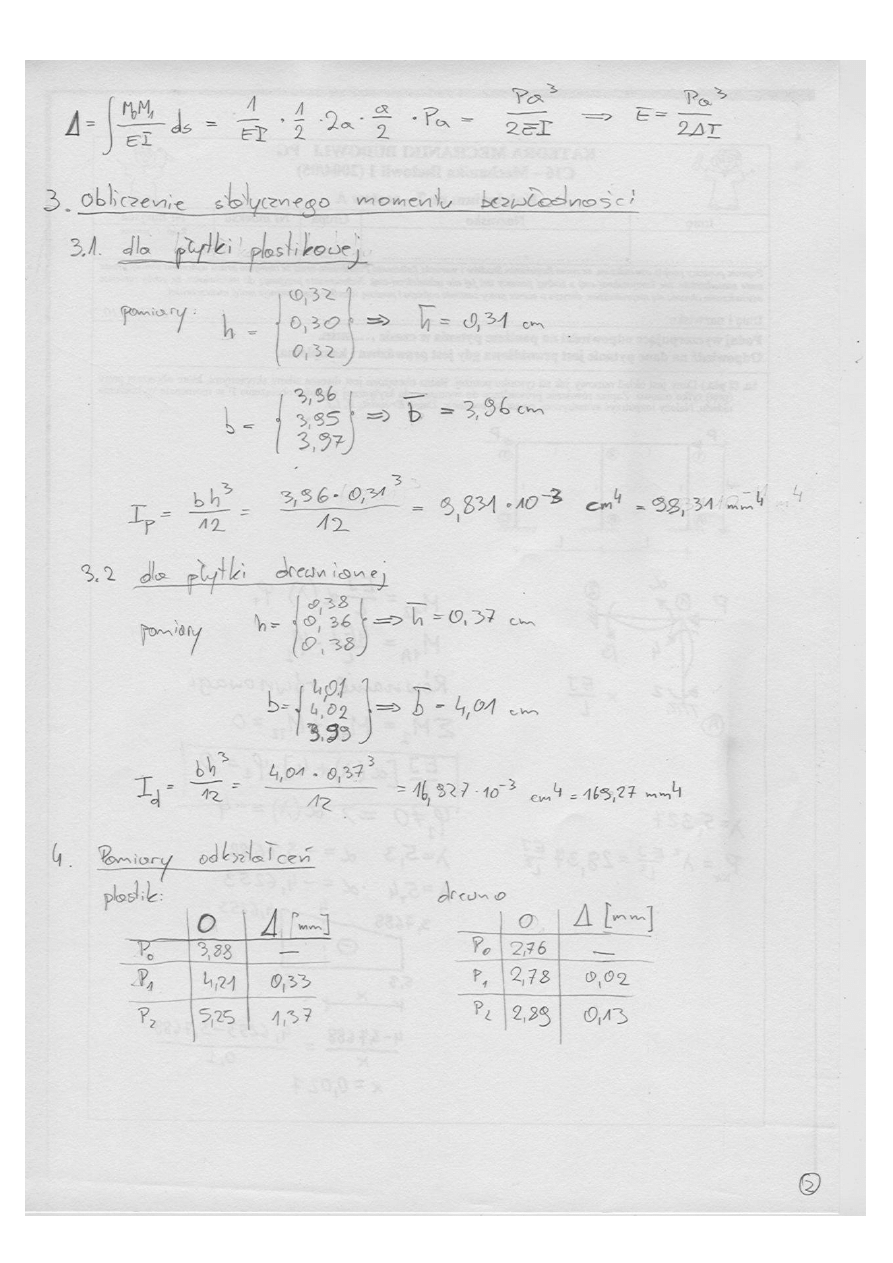 Δ = ∫ M₀M₁/EI ds = 1/EI · 1/2 · 2a · a/2 · Pa = Pa³/2EI ⟹ E = Pa³/2ΔI
3. Obliczenie statycznego momentu bezwłodności
3.1. dla płytki plastikowej
pomiary: h = {0,32 0,30 0,32} ⟹ h̅ = 0,31 cm
b = {3,96 3,95 3,97} ⟹ b̅ = 3,96 cm
I_p = bh³/12 = 3,96 · 0,31³/12 = 9,831 · 10⁻³ cm⁴ = 98,31 mm⁴
3.2 dla płytki drewnianej
pomiary h = {0,38 0,36 0,38} ⟹ h̅ = 0,37 cm
b = {4,01 4,02 3,99} ⟹ b̅ = 4,01 cm
I_d = bh³/12 = 4,01 · 0,37³/12 = 16,927 · 10⁻³ cm⁴ = 169,27 mm⁴
4. Pomiary odkształceń
plastik: drewno
O Δ [mm] O Δ [mm]
P₀ 3,88 — P₀ 2,76 —
P₁ 4,21 0,33 P₁ 2,78 0,02
P₂ 5,25 1,37 P₂ 2,89 0,13
2